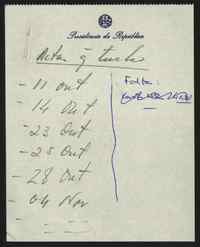 Presidência da República
Actas q
- 11 out
- 14 out
- 23 Out
- 25 out
- 28 Out
- 04 Nov
Falta: